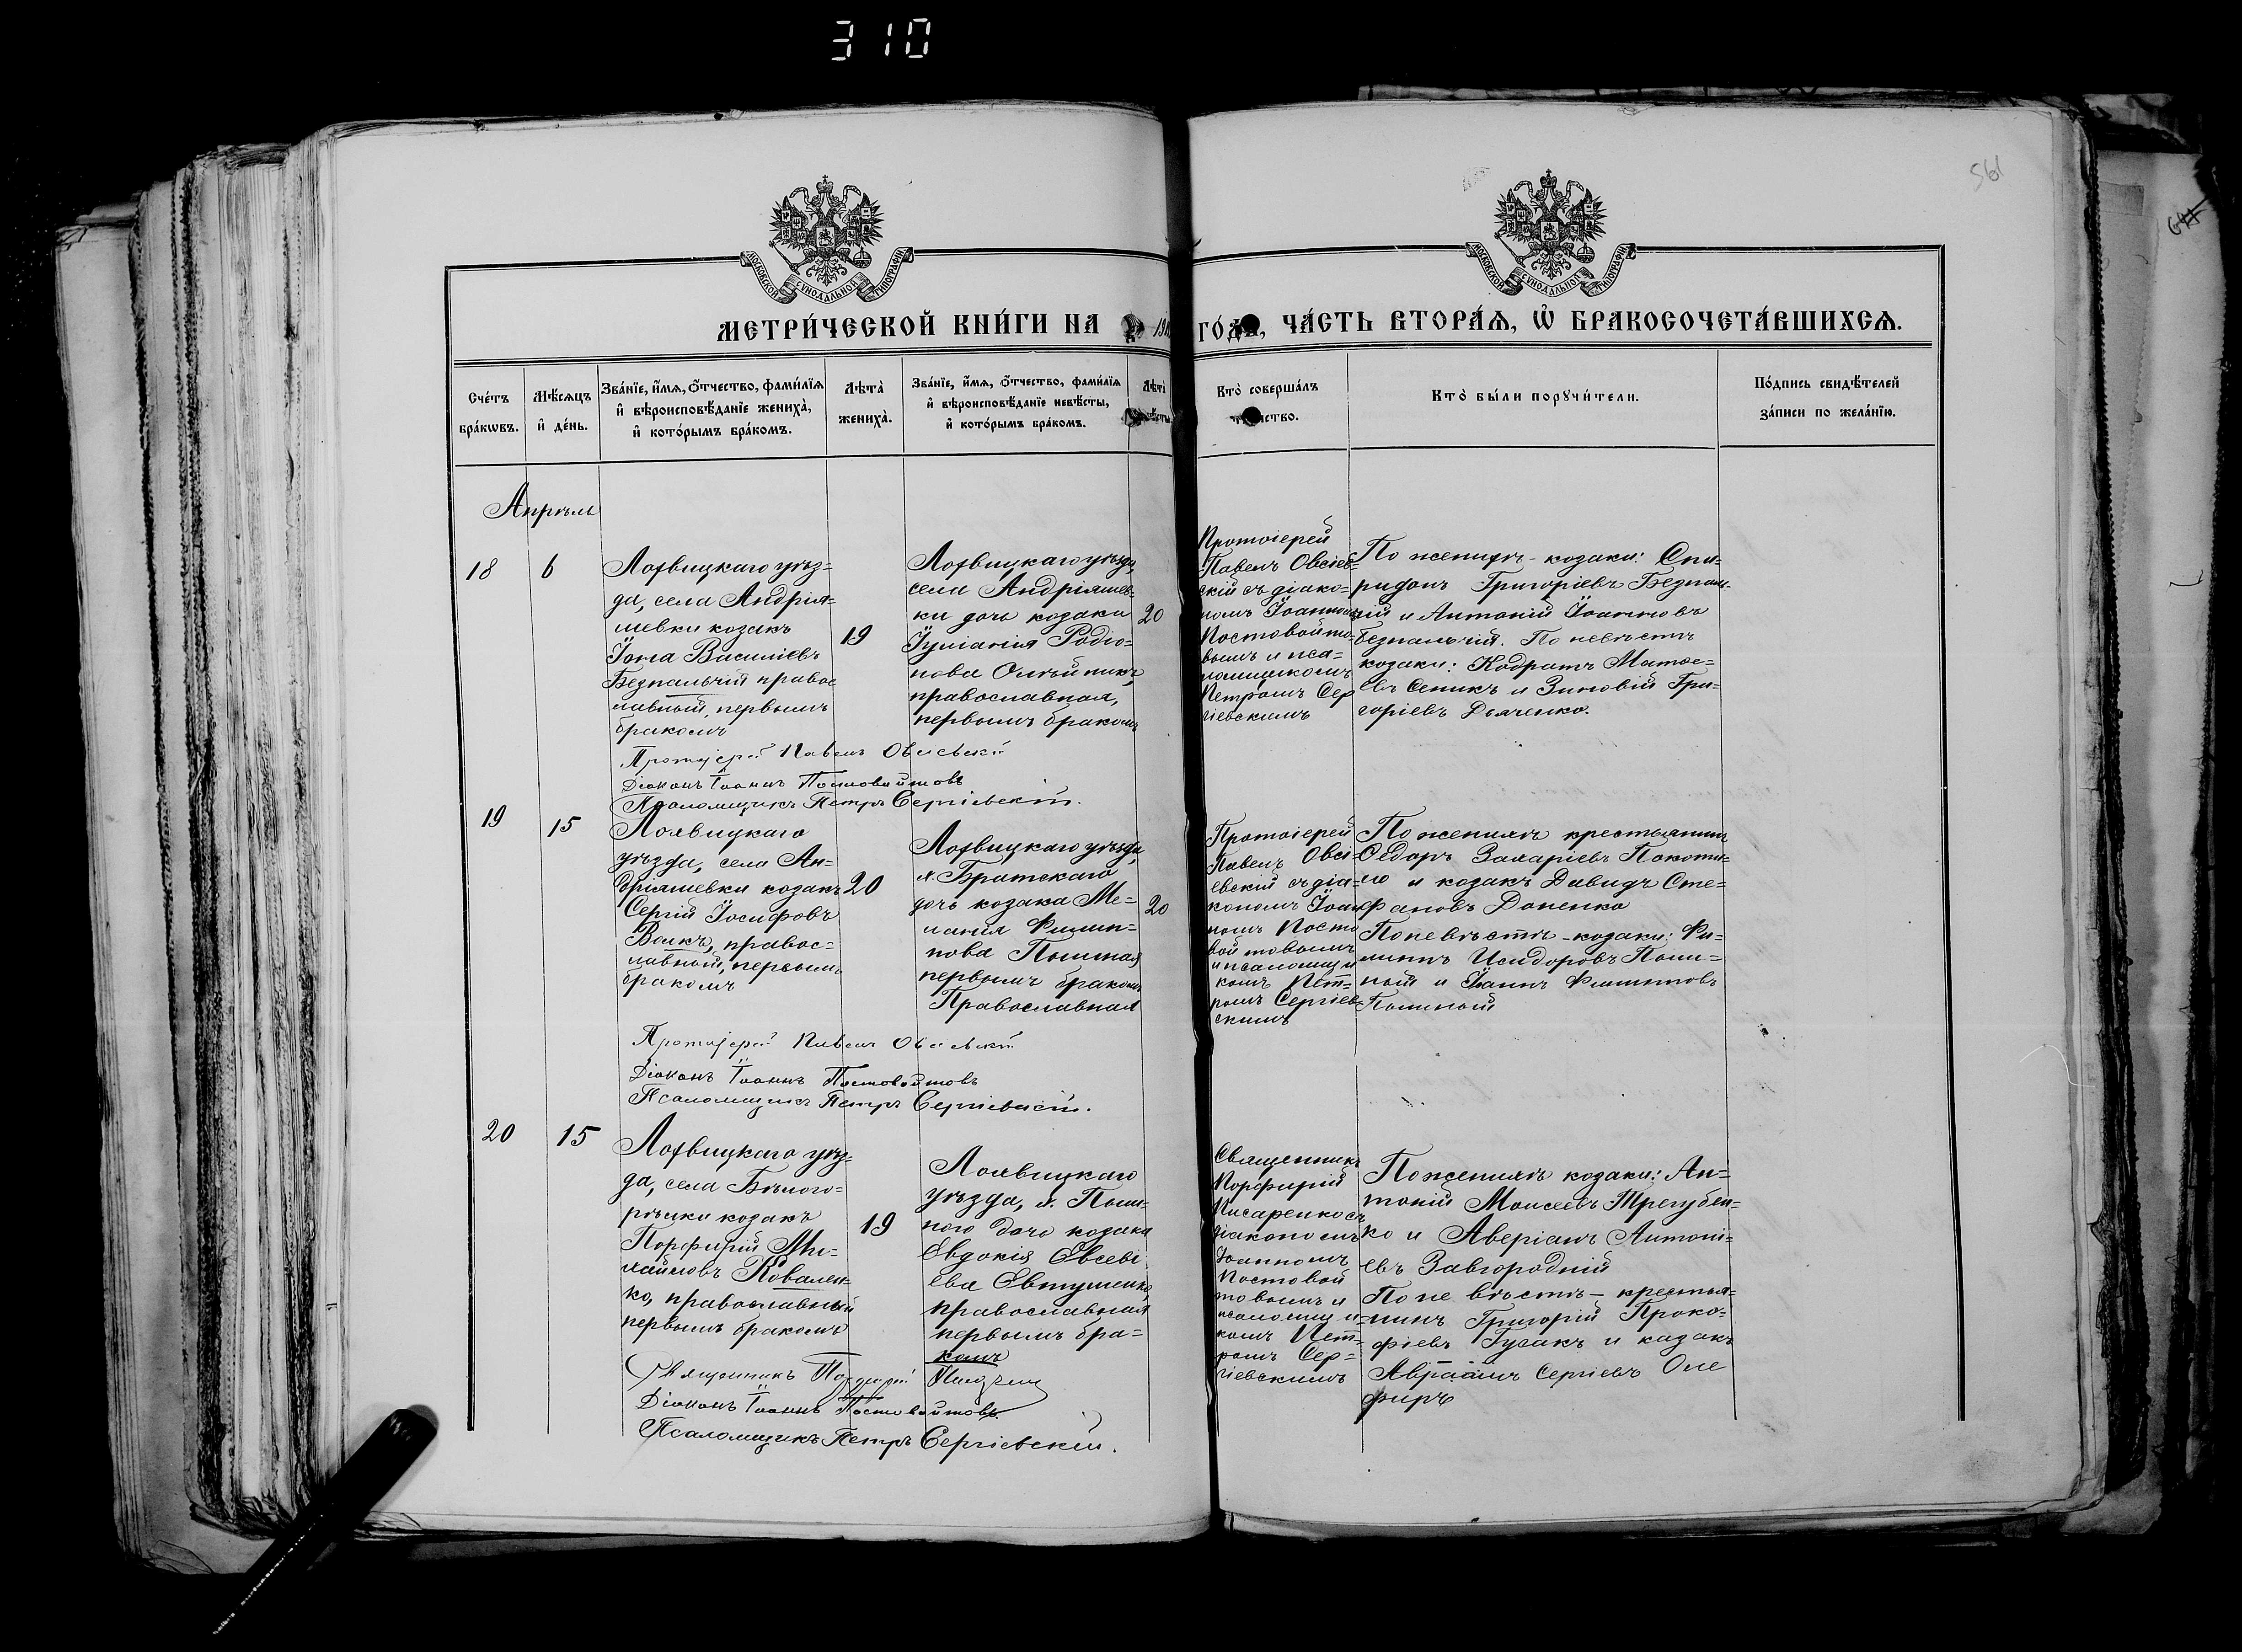 310
561
МОСКОВСКОЙ СУНОДАЛЬНОЙ ТИПОГРАФІИ
МОСКОВСКОЙ СУНОДАЛЬНОЙ ТИПОГРАФІИ
МЕТРИ́ЧЕСКОЙ КНИ́ГИ НА 19 ГО́ДА, ЧА́СТЬ ВТОРА́Ѧ, Ѡ҆ БРАКОСОЧЕТА́ВШИХСѦ.
Сче́тъ
бра́кѡвъ.
Мѣ́сѧцъ
и҆ де́нь.
Зва́нїе, и҆́мѧ, ѻ҆́тчество, фами́лїѧ
и҆ вѣроисповѣ́данїе жениха̀,
и҆ кото́рымъ бра́комъ.
Лѣта̀
жениха̀.
Зва́нїе, и҆́мѧ, ѻ҆́тчество, фами́лїѧ
и҆ вѣроисповѣ́данїе невѣ́сты,
и҆ кото́рымъ бра́комъ.
Лѣта̀
Кто̀ соверша́лъ
та́инство.
Кто̀ бы́ли порꙋчи́тели.
По́дпись свидѣ́телей
за́писи по жела́нїю.
Апрѣль
18
6
Лохвицкаго уѣз=
да, села Андрія=
шевки козакъ
Іона Василіевъ
Безпальчій правос
лавный, первымъ
бракомъ
19
Лохвицкаго уѣзда,
села Андріяшев-
ки дочь козака
Іуліанія Родіо=
нова Олѣйникъ,
православная,
первымъ бракомъ
20
Протоіерей
Павелъ Овсіев-
скій съ діако=
номъ Іоанномъ
Постовойто-
вымъ и пса=
ломщикомъ
Петромъ Сер
гіевскимъ
По женихѣ - козаки: Спи=
ридонъ Григоріевъ Безпаль-
чій и Антоній Іоанновъ
Безпальчій. По невѣстѣ
козаки: Кодратъ Матѳе=
евъ Сепикъ и Зиновій Гри=
горіевъ Дьяченко.
Протоіерей Павелъ Овсіевскій
Діаконъ Іоаннъ Постовойтовъ
Псаломщикъ Петръ Сергіевскій.
19
15
Лохвицкаго
уѣзда, села Ан=
дріяшевки козакъ
Сергій Іосифовъ
Волкъ, правос=
лавный, первымъ
бракомъ
20
Лохвицкаго уѣзда,
х. Братскаго
дочь козака Ме=
ланія Филип=
пова Помпая
первымъ бракомъ
Православная
20
Протоіерей
Павелъ Овсі-
евскій съ діа=
кономъ Іоан
номъ Посто
войтовымъ
и псаломщи
комъ Пет=
ромъ Сергіев
скимъ
По женихѣ крестьянинъ
Ѳедоръ Захаріевъ Покоти=
ло и козакъ Давидъ Сте=
фановъ Доненко
По невѣстѣ - козаки: Фи=
липпъ Исидоровъ
и Іоаннъ Филипповъ
Протоіерей Павелъ Овсіевскій
Діаконъ Іоаннъ Постовойтовъ
Псаломщикъ Петръ Сергіевскій.
20
15
Лохвицкаго уѣз-
да, села Бѣлого=
рѣлки козакъ
Порфирій Ми=
хайловъ Ковален=
ко, православный
первымъ бракомъ
19
Лохвицкаго
уѣзда, х.
дочь козака
Евдокія Евсеві
ева Евтушенко,
православная
первымъ бра=
комъ
Священникъ
Порфирій
Писаренко съ
діакономъ
Іоанномъ
Постовой
товымъ и
псаломщи=
комъ Пет=
ромъ Сер=
гіевскимъ
По женихѣ козаки: Ан=
тоній Моисеевъ Трегубен=
ко и Аверіанъ Антоні=
евъ Завгородній
По невѣстѣ - крестья=
нинъ Григорій Проко=
фіевъ Гусакъ и казакъ
Авраамъ Сергіевъ Оле
фиръ
Священникъ Порфирій
Діаконъ Іоаннъ Постовойтовъ.
Псаломщикъ Петръ Сергіевскій.